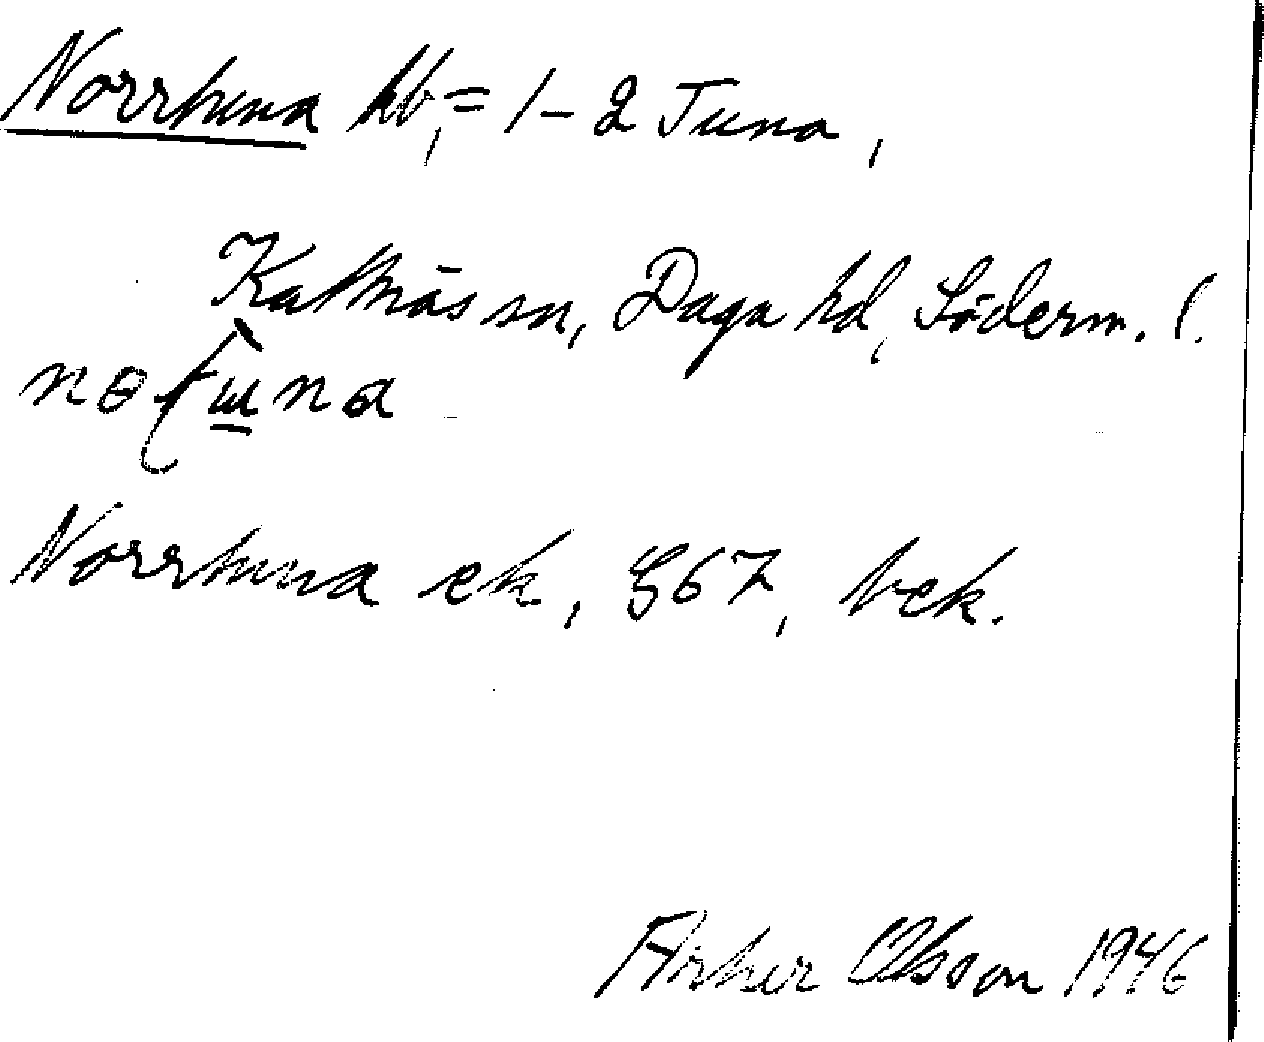 Norrtuna hb, = 1-2 Tuna,
Kattnäs sn, Daga hd, Söderm. l.
Norrtuna ek, G67, bek.
Arthur Olsson 1946